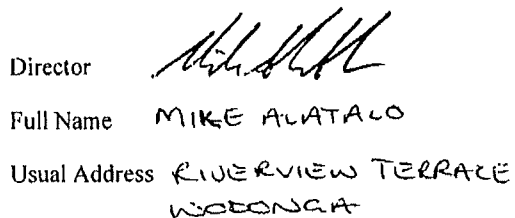 Director
Full Name MIKE ALATALO
Usual Address RIVERVIEW TERRACE
WODONGA